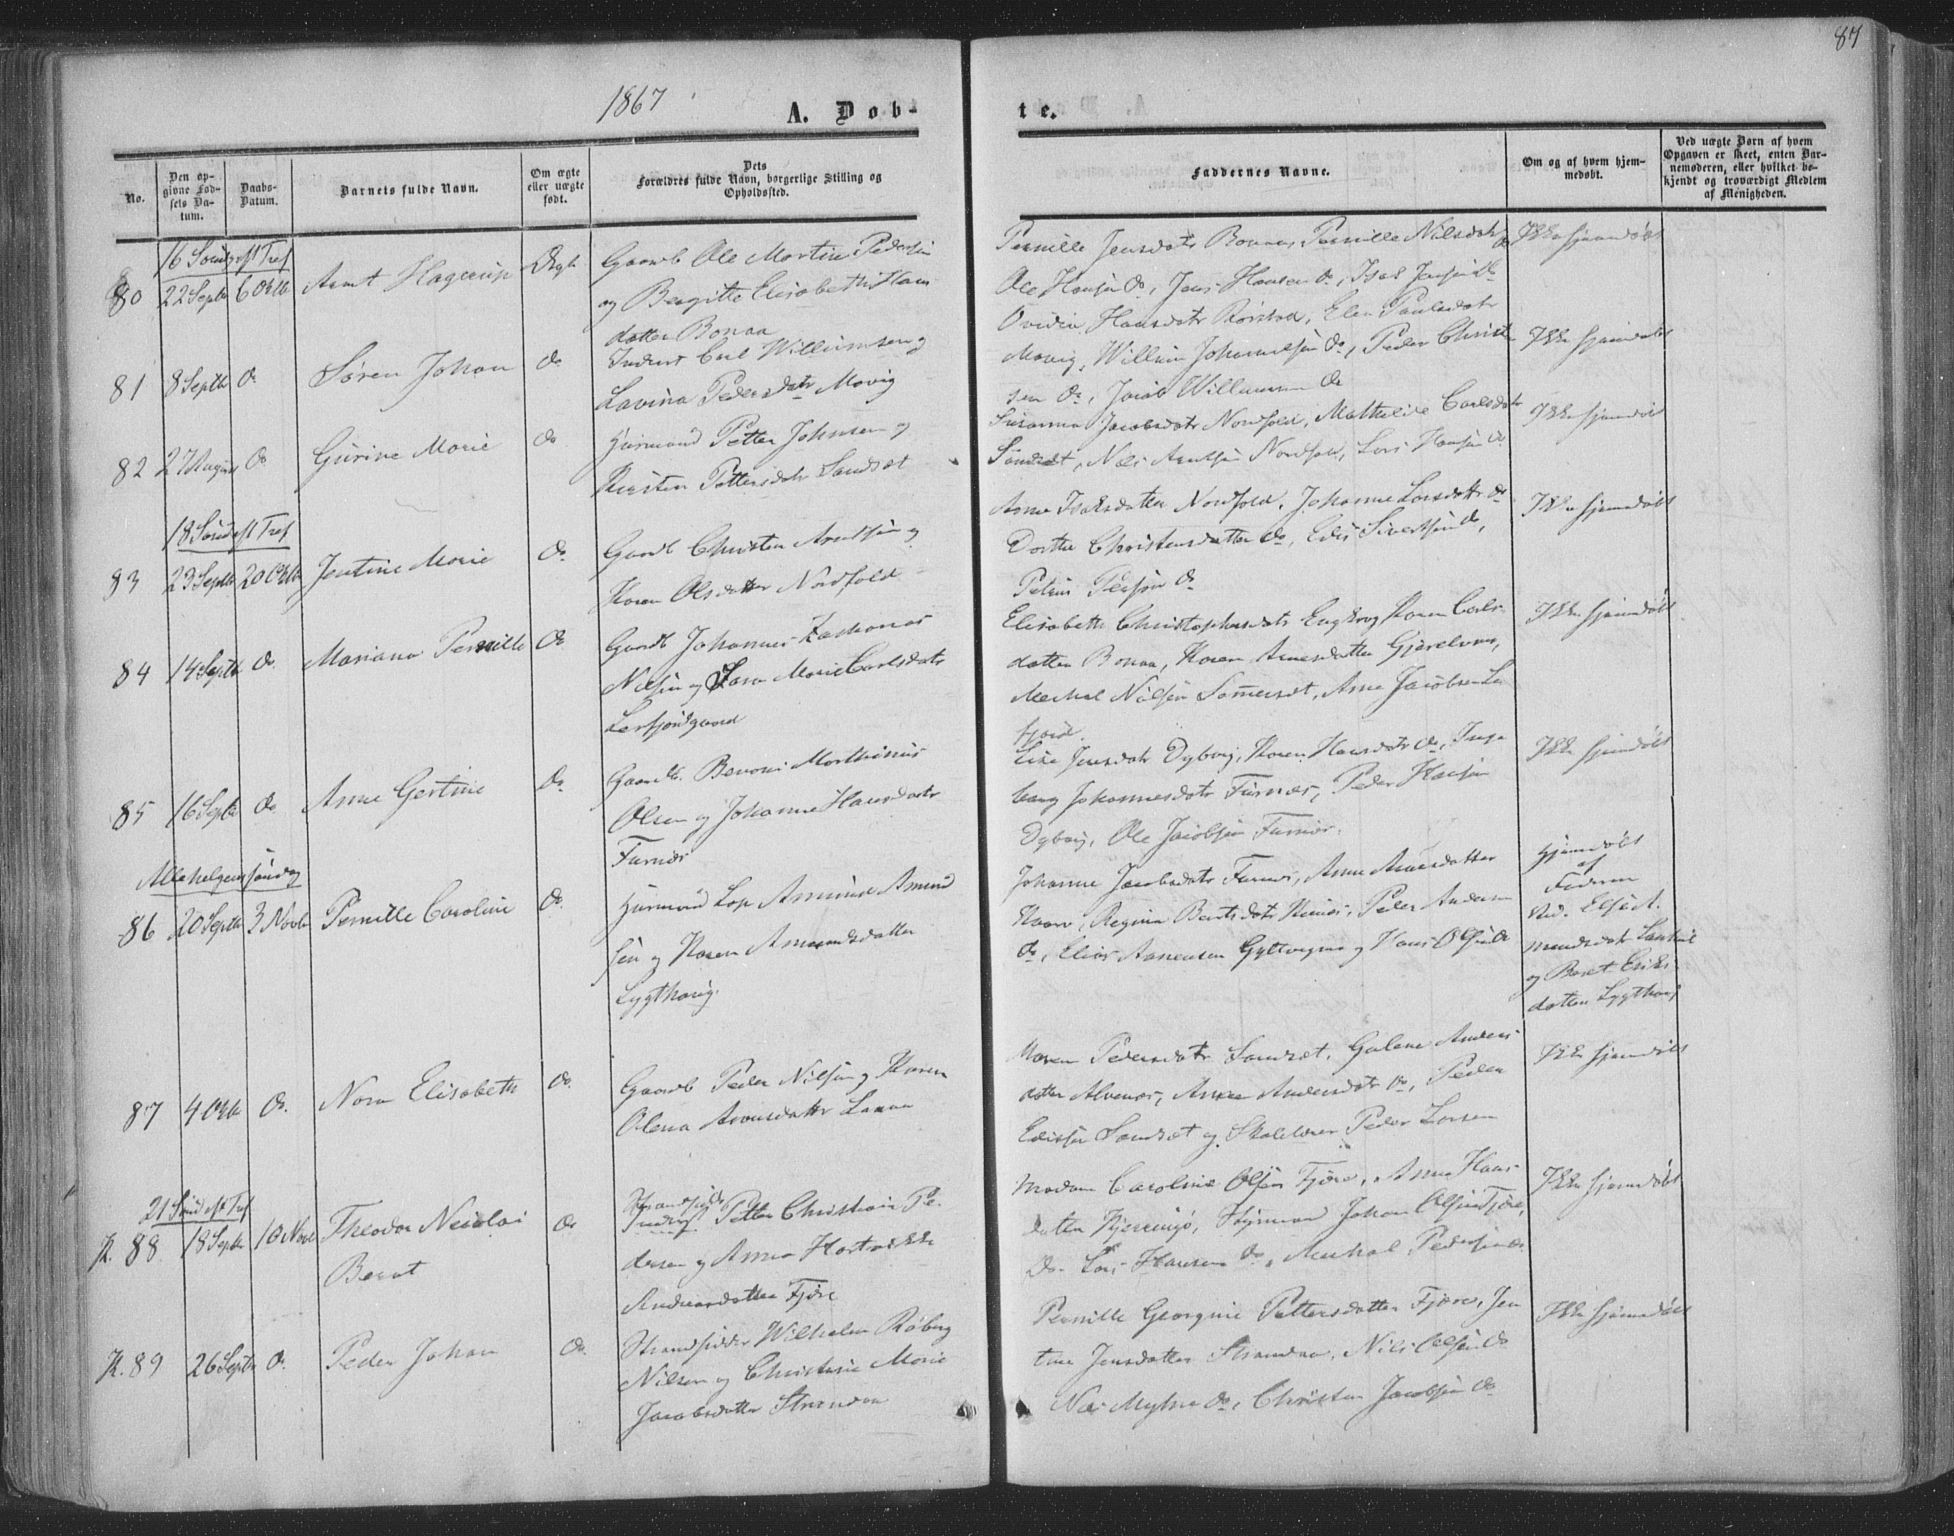 1867
87
A. Døb-
te.
No.
Den op-
givne Fød-
sels Da-
tum.
Daabs-
Datum.
Barnets fulde Navn.
Om ægte
eller uægte
født.
Dets
Forældres fulde Navn, borgerlige Stilling og
Opholdssted.
Faddernes Navne.
Om og af hvem hjem-
medøbt.
Ved uægte Børn af hvem
Opgaven er skeet, enten Bar-
nemoderen, eller hvilket be-
kjendt og troværdigt Medlem
af Menigheden.
16 Sønd eft Tref
80 22 Septb 6 Oktb Arnt Hagerup Ægte
Gaardb Ole Martin Pedersen
og Bergitte Elisabeth Hans
datter Bonaa
Pernille Jensdatr Bonaa, Pernille Nilsdatr do
Ole Hansen do, Jens Hansen do, Isak Jensen do
Ikke hjemdøbt
81 8 Septb do Søren Johan do
Inderst Carl Willumsen og
Lavina Pedersdatr Movig
Ovidia Hansdatr Rørstad, Elen Paulsdatr
Movig, Willum Johannesen do, Peder Christen
sen do, Jacob Willumsen do
Ikke hjemdøbt
82 27 August do Gurine Marie do
Huusmand Petter Johnsen og
Kirsten Pettersdatr Sandset
Susanna Jacobsdatr Nordfold, Mathilde Carlsdatr
Sandset, Nils Arntsen Nordfold, Lars Hansen do
Ikke hjemdøbt
18 Sønd eft Tref
83 23 Septb 20 Oktb Jentine Marie do
Gaardb Christen Arntsen og
Karen Olsdatter Nordfold
Anne Isaksdatter Nordfold, Johanne Larsdatr do
Dorthe Christensdatter do, Edis Sivertsen do,
Petrus Persen do
Ikke hjemdøbt
84 14 Septb do Mariana Pernille do
Gaardb Johannes Zacharias
Nilsen og Sara Marie Carlsdatr
Leerfjordgaard
Elisabeth Christophersdatr Engkrog, Karen Carls
datter Bonaa, Karen Arnesdatter Gjerelvnes,
Mechal Nilsen Sommerset, Arne Jacobsen Ler
fjord
Ikke hjemdøbt
85 16 Septb do Anne Gertine do
Gaardb. Benoni Marthinus
Olsen og Johanne Hansdatr
Furnes
Lise Jensdatr Dyborg, Karen Hansdatr do, Inge
borg Johannesdatr Furnes, Peder Hansen
Dyborg, Ole Jacobsen Furnes.
Ikke hjemdøbt
Allehelgens søndag
86 20 Septb 3 Novb Pernille Caroline do
Huusmand Lap Amund Amund
sen og Karen Amundsdatter
Lygthaug.
Johanne Jacobsdatr Furnes, Anne Arnesdatter
Regina Peder Andersen
do, Elias Gyltvigne og Hans Olsen do
Hjemdøbt
af
Faderen
og Beret Eriks
datter Lygthaug
87 4 Oktb do. Nora Elisabeth do.
Gaardb Peder Nilsen og Karen
Olena Arnesdatter Laxaa
Maren Pedersdatr Sandset, Galene Anders
datter Alvenes, Anne Andersdatr do, Peder
Edissen Sandset og Skolelærer Peder Larsen
Ikke hjemdøbt
21 Sønd eft Tref
K. 88 18 Septb 10 Novb Theodor Nicolai
Bernt
do
Strandsidder
Inderst Petter Christian Pe-
dersen og Anna Hartvikke
Andreasdatter Fjære
Madam Caroline Olsen Fjære, Anna Hans
datter Kjerringø, Styrmand Johan Olsen Fjære,
do Lars Hansen do, Mechal Pedersen do
Ikke hjemdøbt
K. 89 26 Septb do. Peder Johan do.
Strandsidder Wilhelm Røberg
Nilsen og Christine Marie
Jacobsdatter Strandaa
Pernille Georgine Pettersdatter Fjære, Jen
tine Jensdatter Strandaa, Nils Olsen do
Nils Myhre do, Christen Jacobsen do
Ikke hjemdøbt